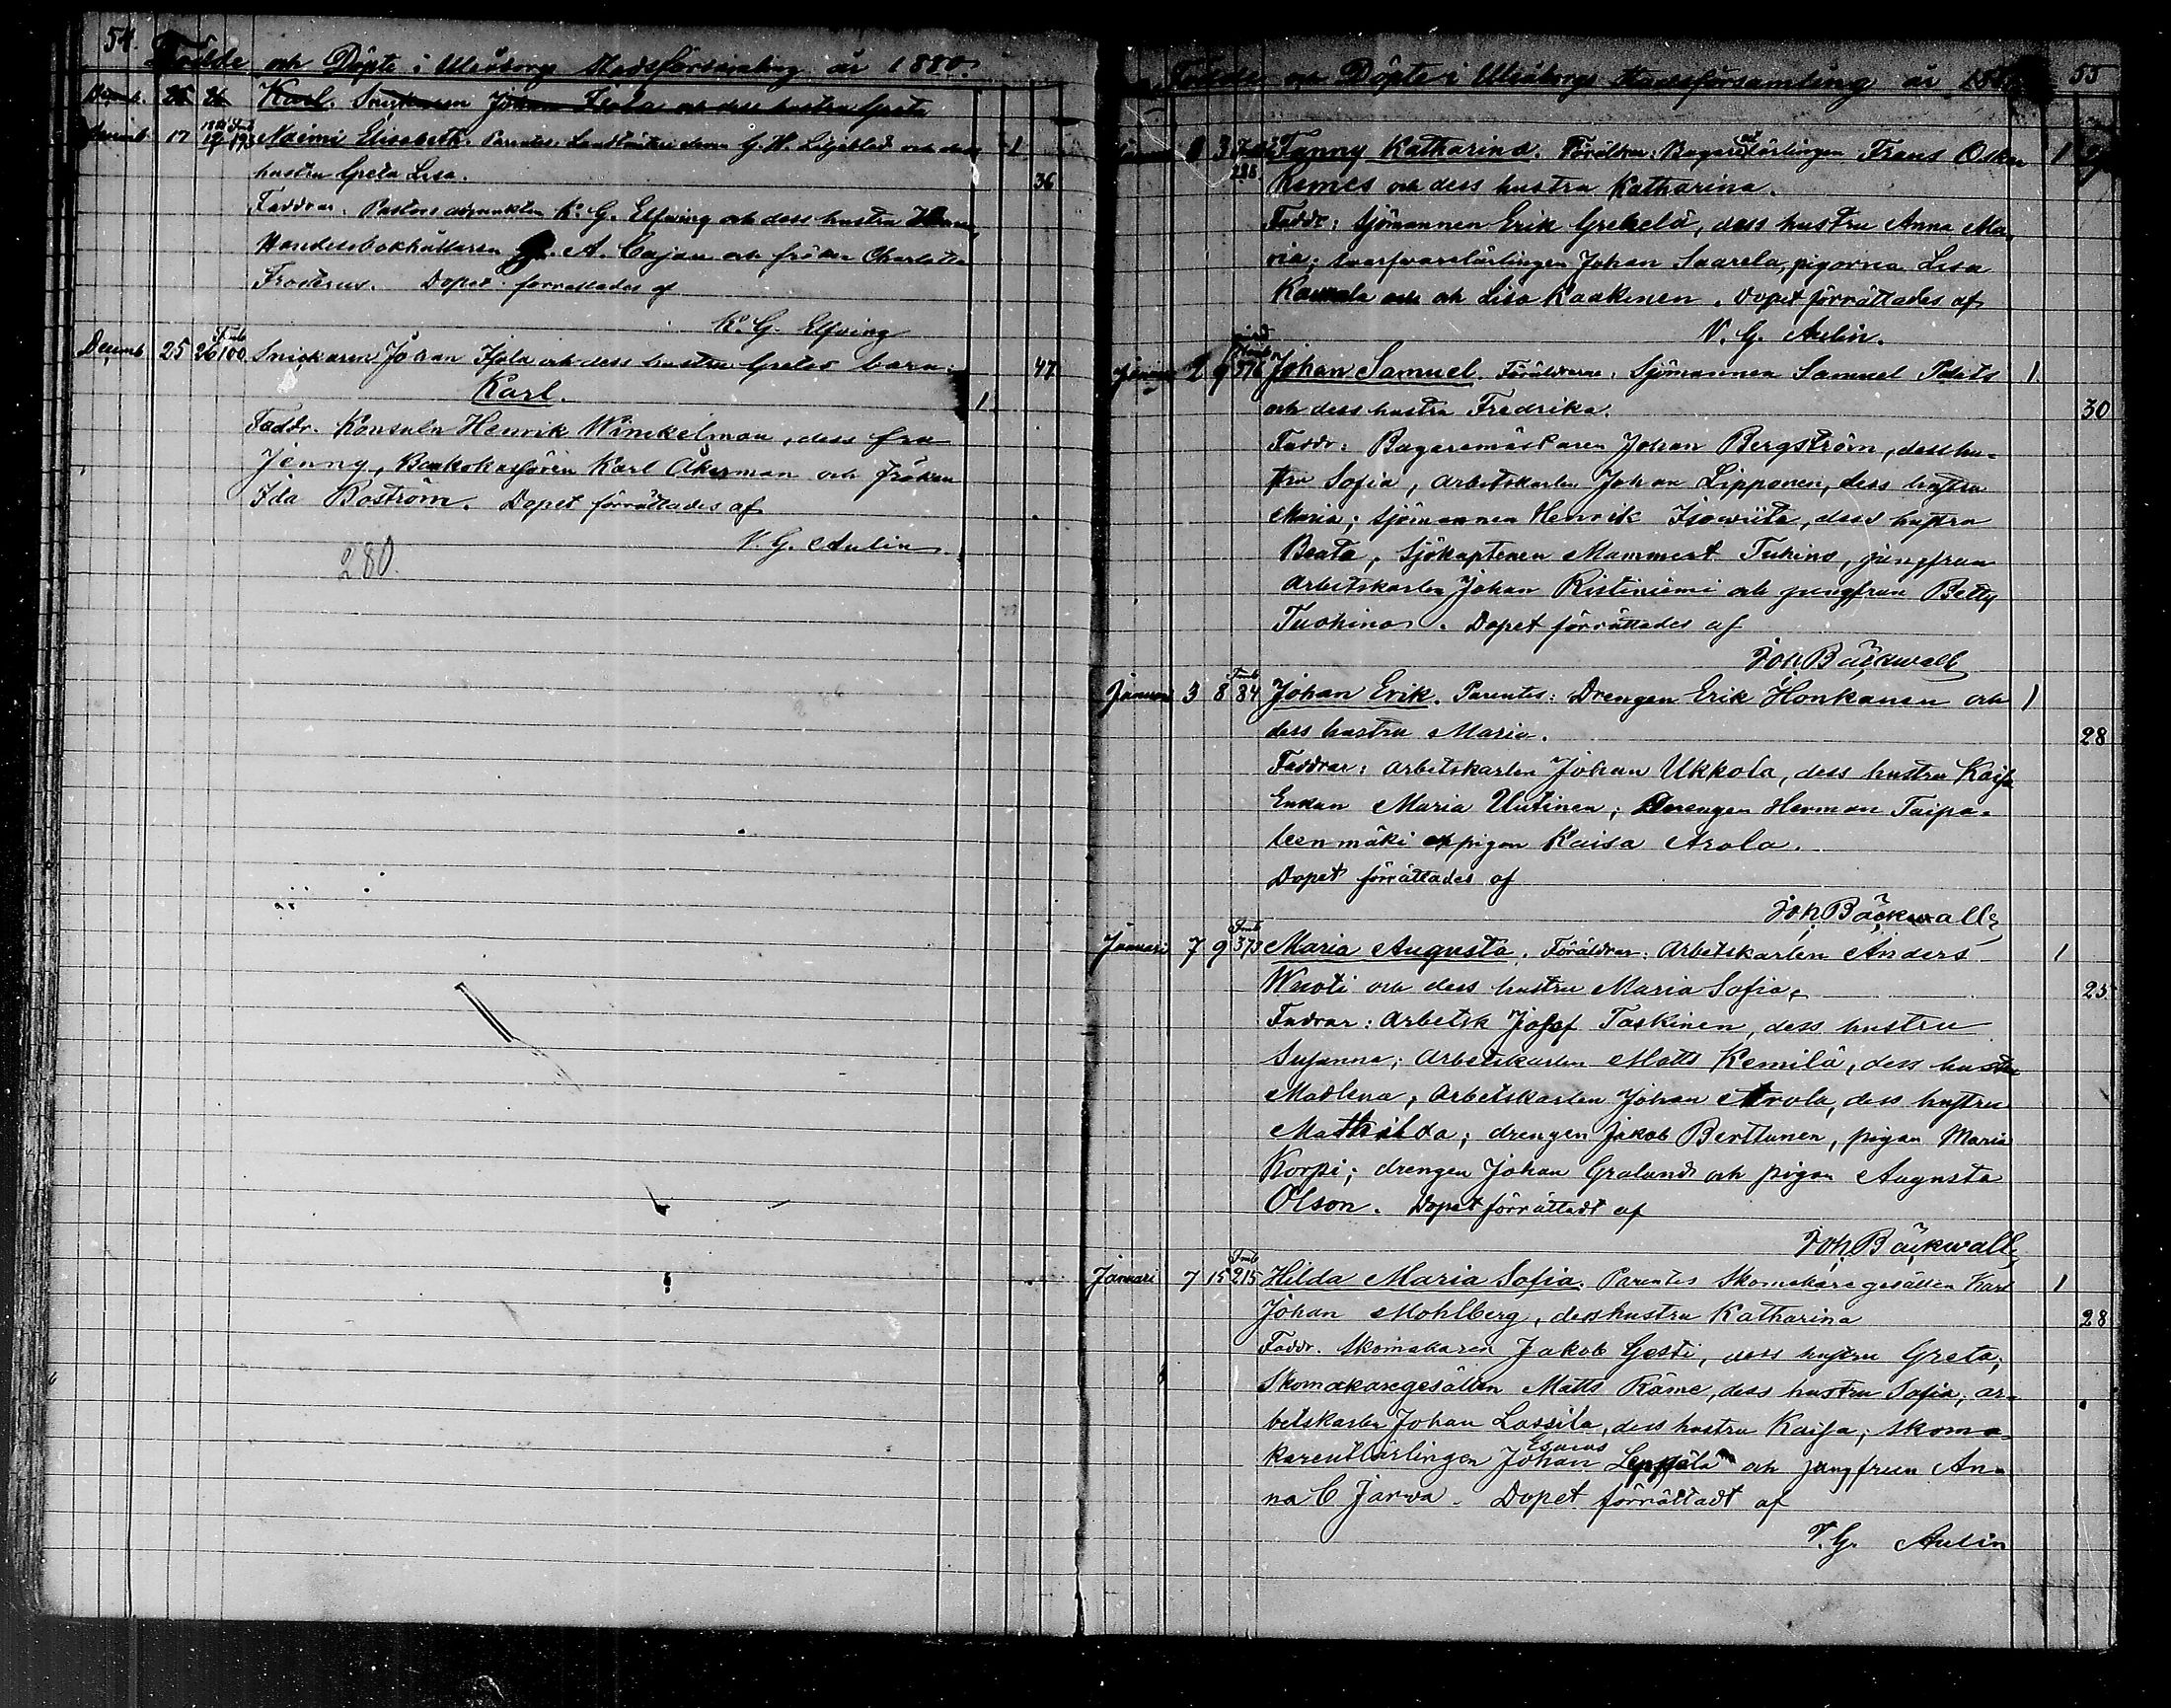 54.
Födde och Döpte i Uleåborgs Stadsförsamling år 1880.
Decemb. 25 26 Karl. Snickaren Johan Isola och dess hustru Greta
17 19/1 193 Naëmi Elisabeth. Parentes: Landtmäteridomn G. W. Liljeblad och dess 1
hustru Greta Lisa. 36
Faddrar. Pastors adjunkten K. G. Elfving och dess hustru
Handelsbokhållaren A. Cajan och fröken Charlotta
Froserus. Dopet förrättades af
K. G. Elfving
Decemb 25 26 100 Snickaren Johan Isola och dess hustru Gretas barn: 47
Karl. 1
Faddr. Konsuln Henrik Winckelman, dess fru
Jenny, Bankokassören Karl Åkerman och fröken
Ida Boström. Dopet förrättades af
V. G. Aulin
280.
Födde och Döpte i Uleåborgs Stadsförsamling år 55
Januari 3 288 Fanny Katharina. Föräldrar: Bagarelärlingen Frans Oskar 1
Kemes och dess hustru Katharina.
Faddr: Sjömannen Erik Grekelä, dess hustru Anna Ma-
ria; Swarfvarelärlingen Johan Saarela, pigorna Lisa
och Lisa Kaakinen. Dopet förrättades af
V. G. Aulin.
Januari 2 9 576 Johan Samuel. Föräldrarne: Sjömannen Samuel 1
och dess hustru Fredrika. 30
Faddr: Bagaremästaren Johan Bergström, dess hu-
stru Sofia, arbetskarlen Johan Lipponen, dess hustru
Maria; Sjömannen Henrik Isowiita, dess hustru
Beata, Sjökaptenen Mammert Tuhino, jungfrun
Arbetskarlen Johan Ristiniemi och jungfrun Betty
Tuohino. Dopet förrättades af
Joh. Bäckwall
Januari 3 8 84 Johan Erik. Parentes: Drengen Erik Honkanen och 1
dess hustru Maria. 28
Faddrar: Arbetskarlen Johan Ukkola, dess hustru Kaisa
Enkan Maria Uutinen; Drengen Herman Taipa-
leenmäki o pigan Kaisa Arola.
Dopet förrättades af
Joh. Bäckwall
Januari 7 9 373 Maria Augusta. Föräldrar: Arbetskarlen Anders 1
Wuoti och dess hustru Maria Sofia. 25
Fadrar: Arbetsk Josef Taskinen, dess hustru
Susanna; Arbetskarlen Matts Kemilä, dess hustru
Madlena, Arbetskarlen Johan Arola, dess hustru
Mathilda; drengen Jakob Berttunen, pigan Maria
Korpi; drengen Johan Gralund och pigan Augusta
Olson. Dopet förrättadt af
Joh. Bäckwall
Januari 7 15 215 Hilda Maria Sofia. Parentes Skomakaregesällen Karl 1
Johan Mohlberg, dess hustru Katharina 28
Faddr. Skomakaren Jakob Gesti, dess hustru Greta;
Skomakaregesällen Matts Räme, dess hustru Sofia; ar-
betskarlen Johan Lassila, dess hustru Kaisa; Skoma-
karelärlingen Johan Esaias Leppälä och jungfrun An-
na C Jarva. Dopet förrättadt af
V. G. Aulin